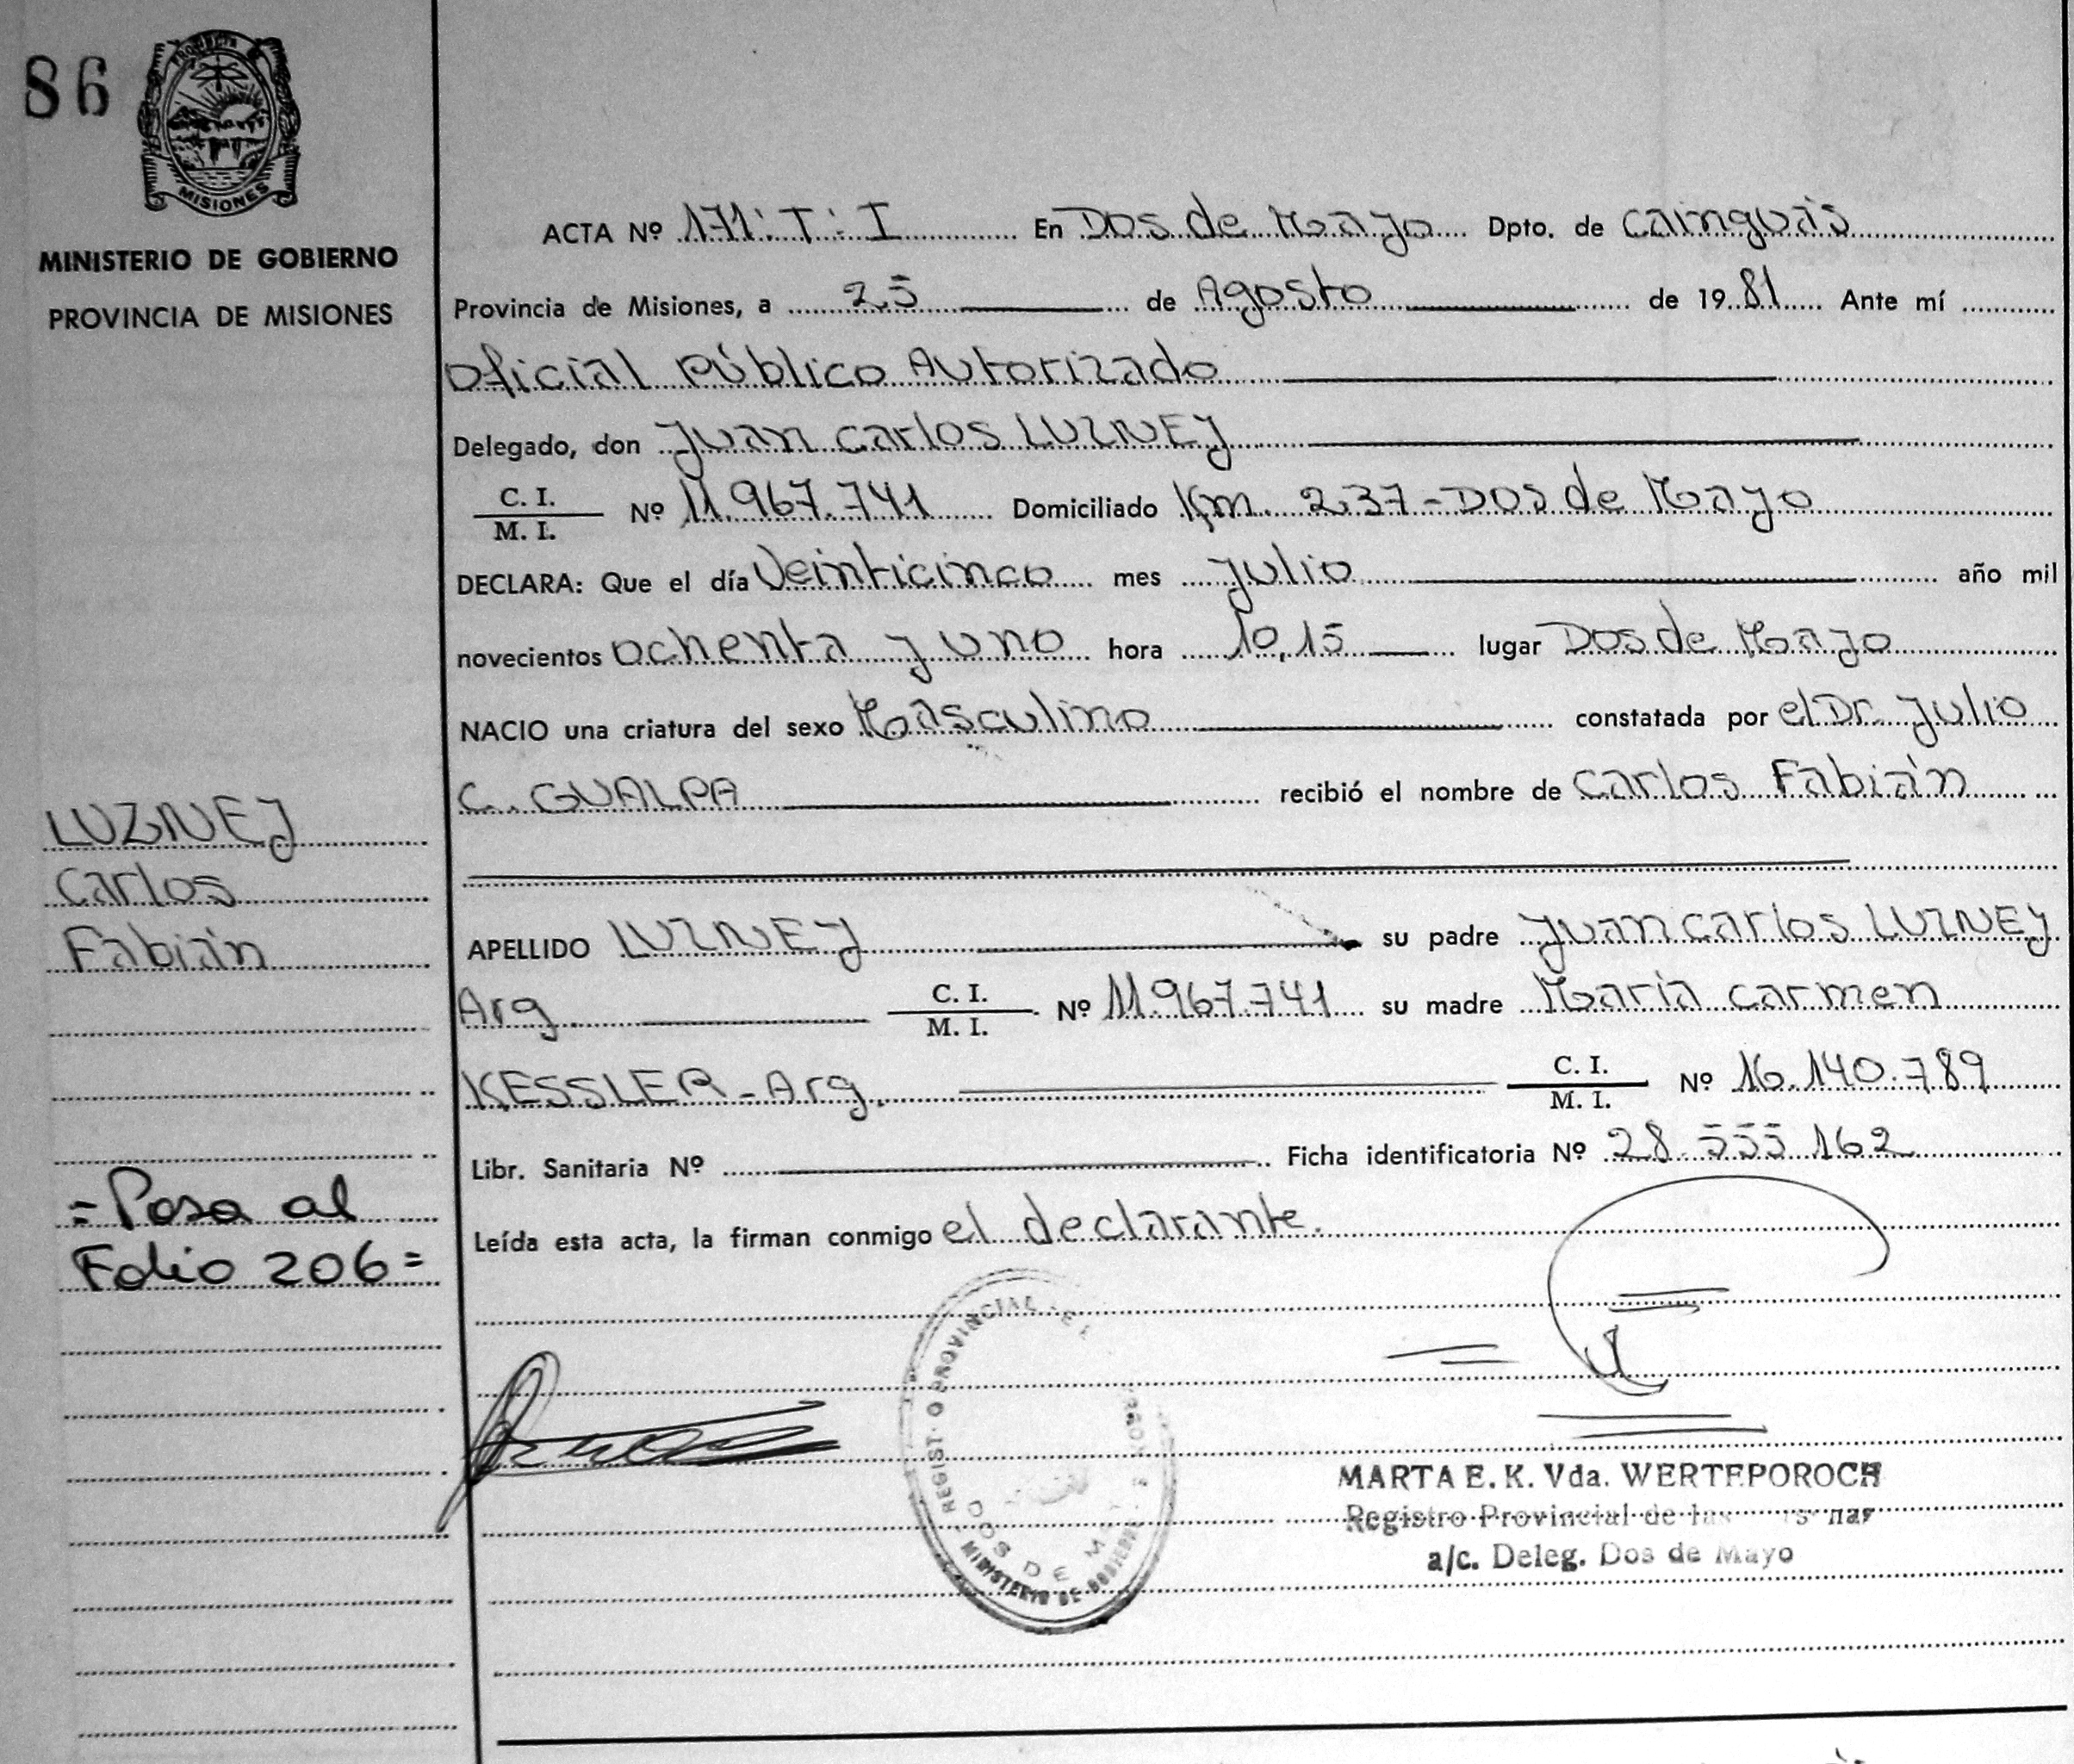 86
PROVINCIA
MISIONES
MINISTERIO DE GOBIERNO
PROVINCIA DE MISIONES
LUZNEJ
Carlos
Fabián
= Pasa al
Folio 206 =
ACTA Nº 171:T:I En Dos de Mayo Dpto. de Cainguás
Provincia de Misiones, a 25 de Agosto de 1981 Ante mí
Oficial Público Autorizado
Delegado, don Juan Carlos LUZNEJ
C. I. / M. I. Nº 11.967.741 Domiciliado Km. 237-Dos de Mayo
DECLARA: Que el día Veinticinco mes Julio año mil
novecientos ochenta y uno hora 10,15 lugar Dos de Mayo
NACIO una criatura del sexo Masculino constatada por el Dr. Julio
C. GUALPA recibió el nombre de Carlos Fabián
APELLIDO LUZNEJ su padre Juan Carlos LUZNEJ
Arg. C. I. / M. I. Nº 11.967.741 su madre María Carmen
KESSLER - Arg. C. I. / M. I. Nº 16.140.789
Libr. Sanitaria Nº Ficha identificatoria Nº 28.555.162
Leída esta acta, la firman conmigo el declarante.
PROVINCIAL
DOS DE
MINISTERIO DE GOBIERNO
MARTA E. K. Vda. WERTEPOROCH
Registro Provincial de las
a/c. Deleg. Dos de Mayo